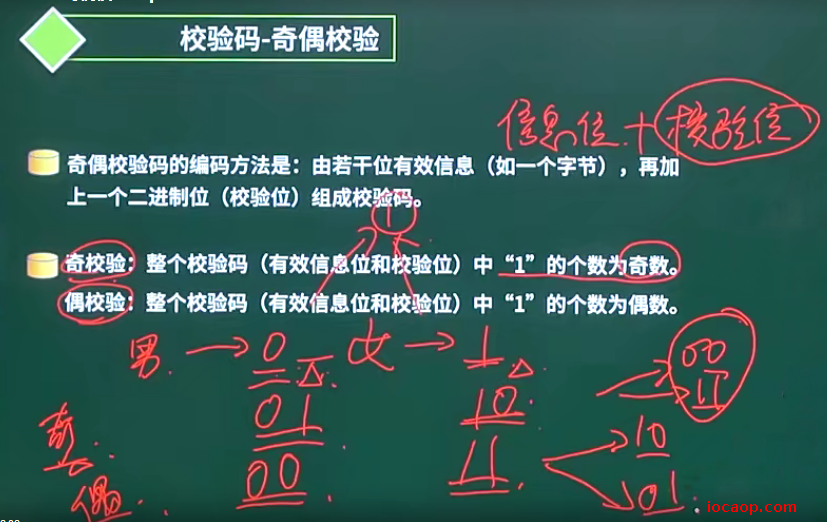 校验码-奇偶校验
信息位+校验位
奇偶校验码的编码方法是：由若干位有效信息（如一个字节），再加
上一个二进制位（校验位）组成校验码。
1
奇校验：整个校验码（有效信息位和校验位）中“1”的个数为奇数。
偶校验：整个校验码（有效信息位和校验位）中“1”的个数为偶数。
男 → 0 女 → 1
00
11
奇 01 10
10
偶 00 11
01
locaop.com